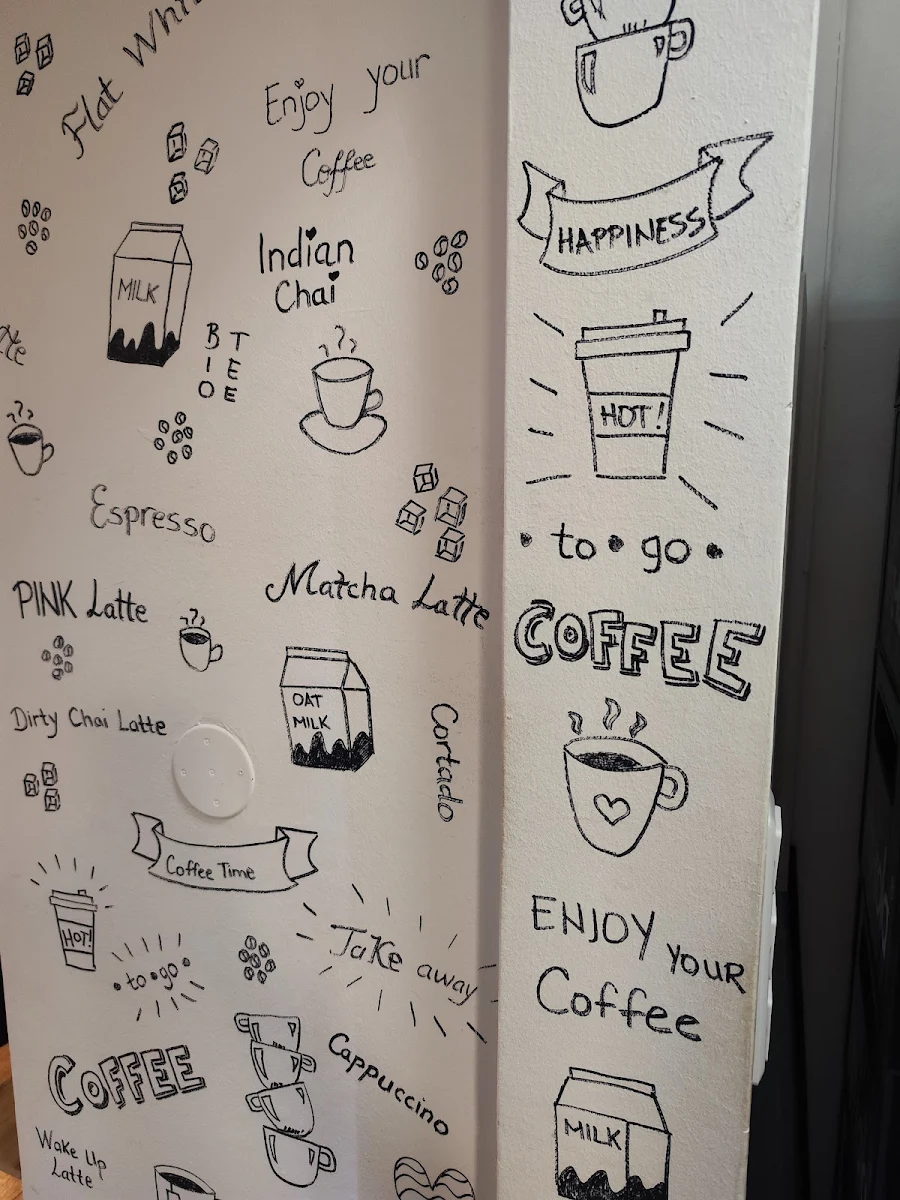 Flat Whi
Enjoy your
Coffee
Indian
Chai
MILK
BIO
TEE
Espresso
PINK Latte
Matcha Latte
OAT
MILK
Dirty Chai Latte
Cortado
Coffee Time
HOT!
• to • go •
Take away
COFFEE
Cappuccino
Wake Up
Latte
HAPPINESS
HOT!
• to • go •
COFFEE
ENJOY YOUR
Coffee
MILK